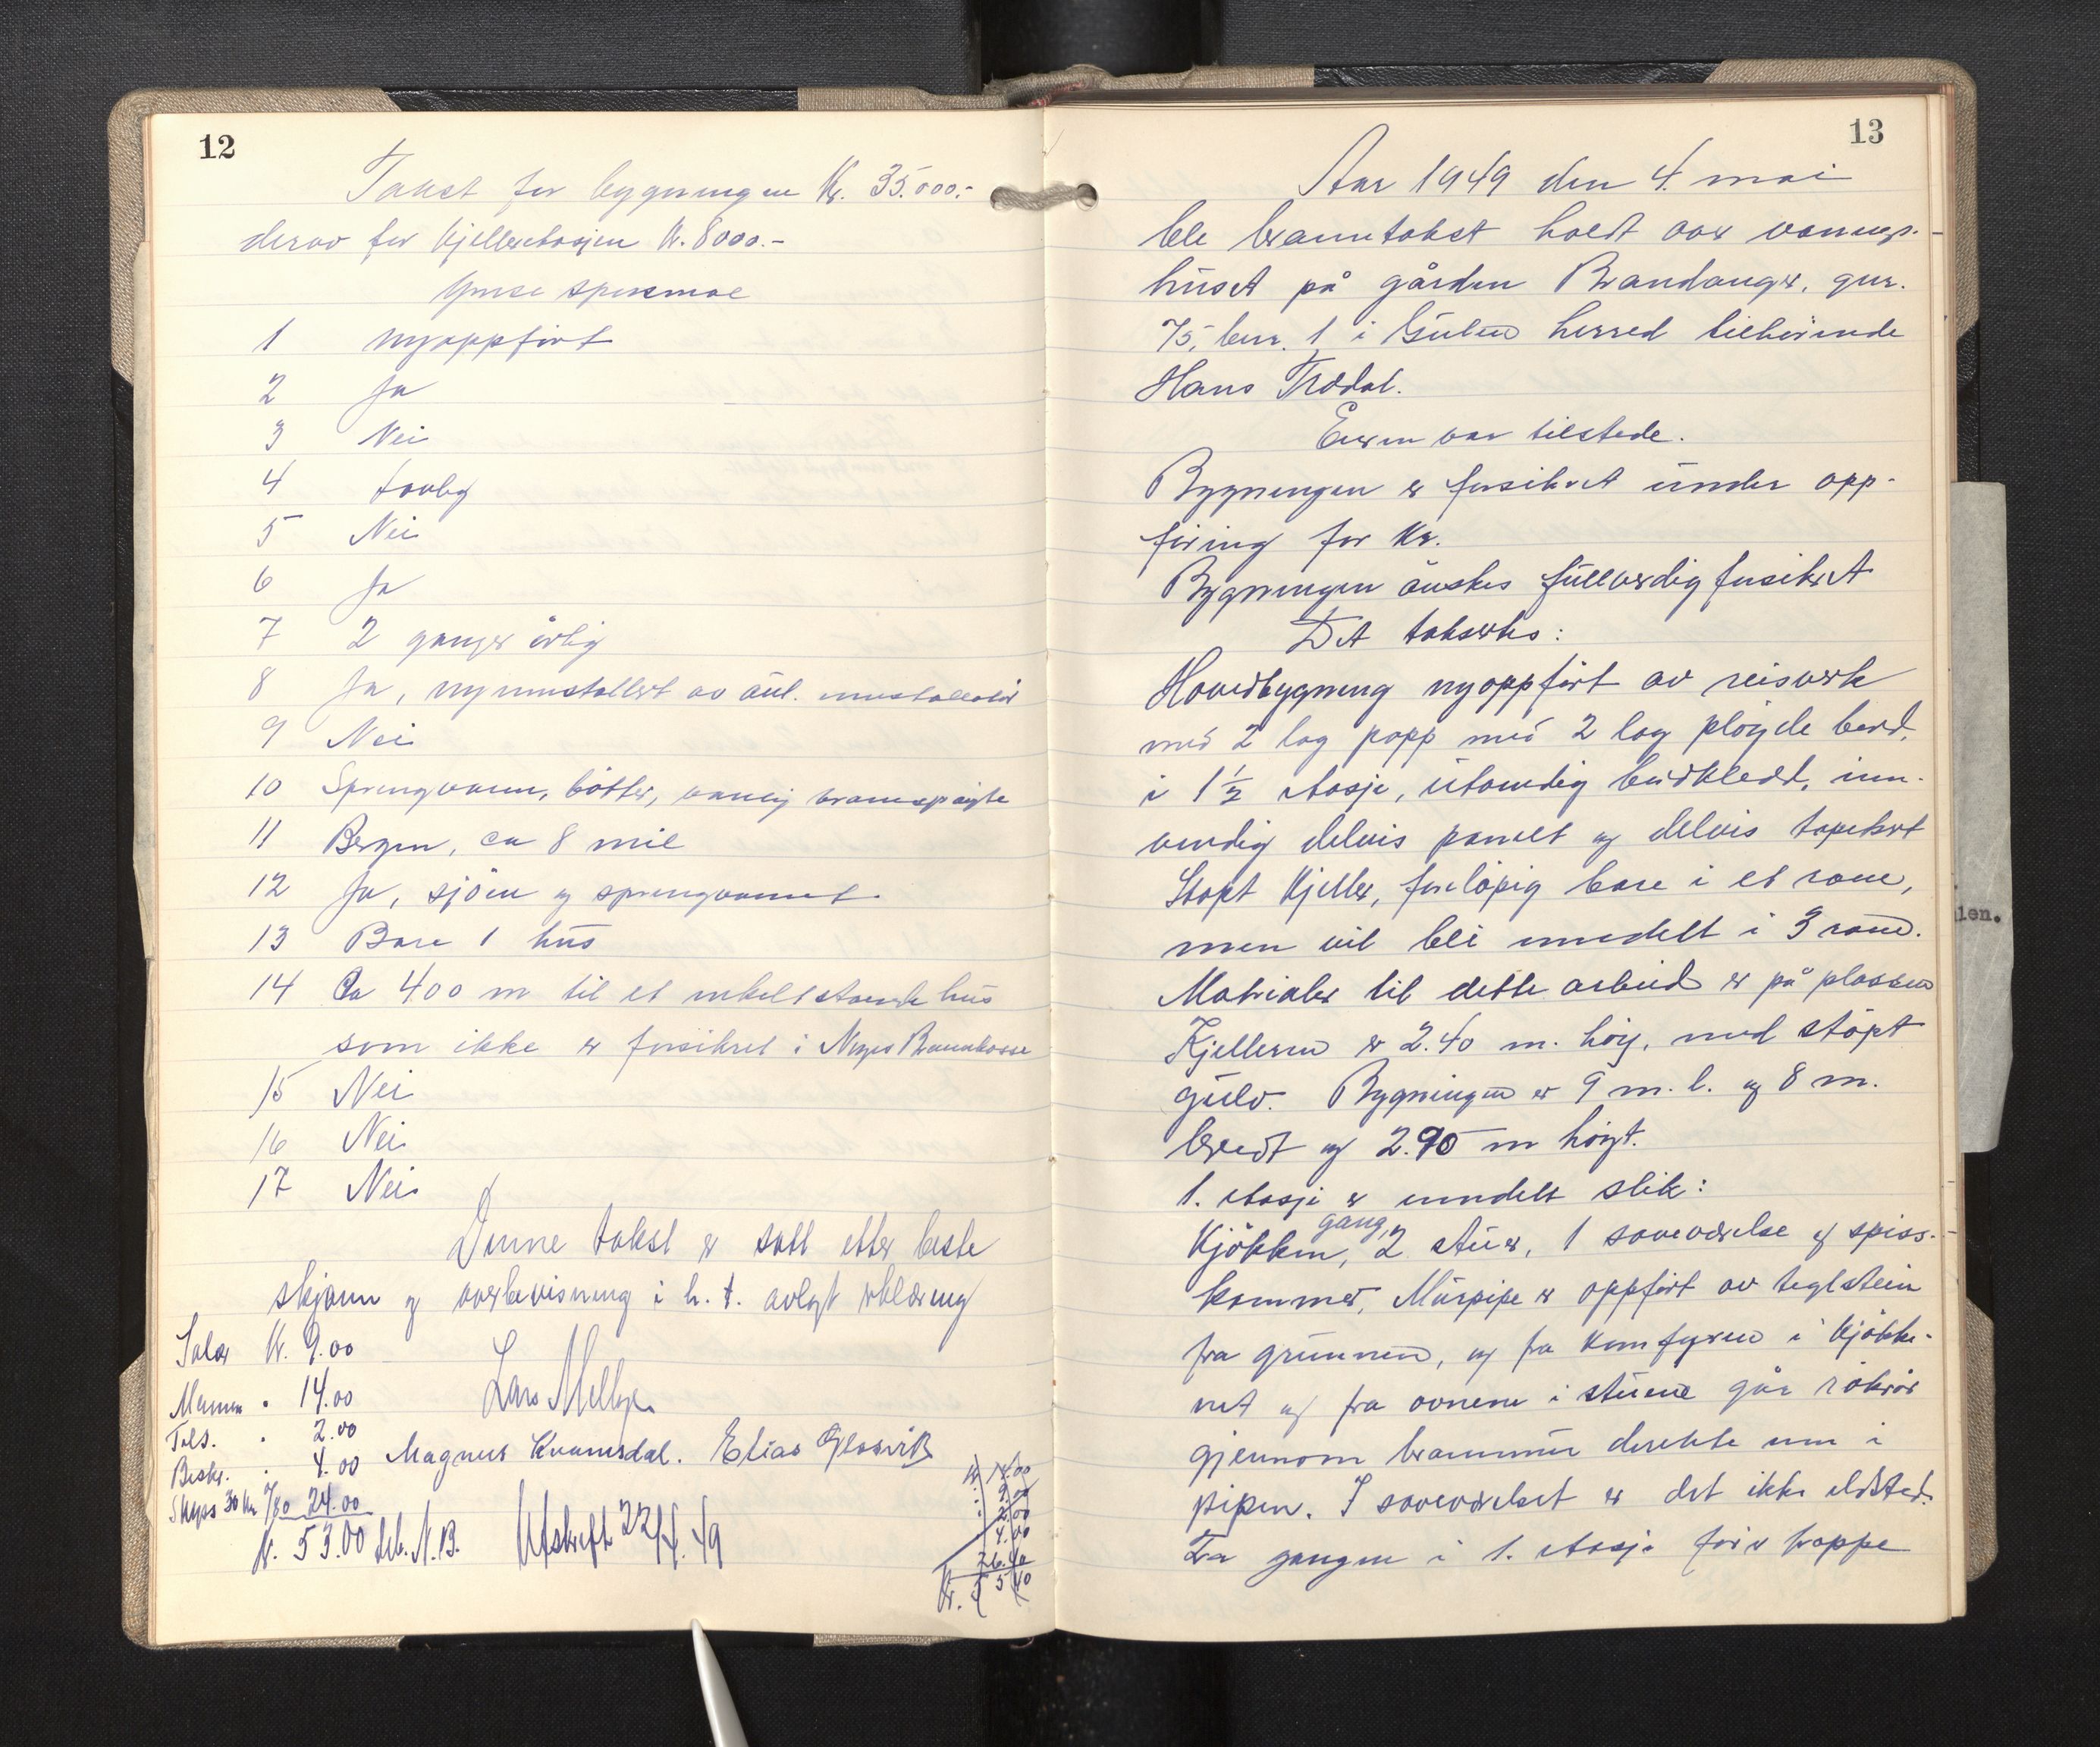 12
Takst for bygningen Kr. 35.000.-
derav for kjelleretasjen Kr. 8000.-
Ymse spørsmål
1 nyoppført
2 Ja
3 Nei
4 tavleg
5 Nei
6 Ja
7 2 ganger årlig
8 Ja, nyinnstallert av aut. innstallatør
9 Nei
10 Springvann, bøtter, vanlig brannsprøyte
11 Bergen, ca 8 mil
12 Ja, sjøen og springvannet.
13 Bare 1 hus
14 Ca 400 m til et enkeltstående hus
som ikke er forsikret i Norges Brannkasse
15 Nei
16 Nei
17 Nei
Denne takst er satt etter beste
skjønn og overbevisning i h. t. avlagt erklæring
Salær Kr. 9.00
Lars Mellbye
14.00
2.00
Magnus Kvamsdal. Elias Glosvik
Beskr. 4.00
Skyss 30 km /80 24.00
Kr. 53.00 deb. N.B. Utskrift 22/4.49
Kr. 14.00
9.00
2.00
4.00
26.40
Kr. 55.40
13
Aar 1949 den 4. mai
ble branntakst holdt over vånings-
huset på gården Brandanger, gnr.
75, bnr. 1 i Gulen herred tilhørende
Hans Trædal.
Eieren var tilstede.
Bygningen er forsikret under opp-
føring for Kr.
Bygningen ønskes fullverdig forsikret
Det takserts:
Hovedbygning nyoppført av reisverk
med 2 lag papp med 2 lag pløyde bord,
i 1½ etasje, utvendig bordkledt, inn-
vendig delvis panelt og delvis tapetsert
Støpt kjeller, foreløpig bare i et rom,
men vil bli inndelt i 3 rom.
Matrialer til dette arbeid er på plassen
Kjelleren er 2.40 m. høy, med støpt
gulv. Bygningen er 9 m. l. og 8 m.
bredt og 2.90 m høyt.
1. etasje er inndelt slik:
Kjøkken, gang, 2 stuer, 1 soveværelse og spiss-
kammer, Murpipe er oppført av teglstein
fra grunnen, og fra komfyren i kjøkke-
net og fra ovnene i stuene går røkrør
gjennom brannmur direkte inn i
pipen. I soveværelset er det ikke ildsted.
Fra gangen i 1. etasje fører trappe